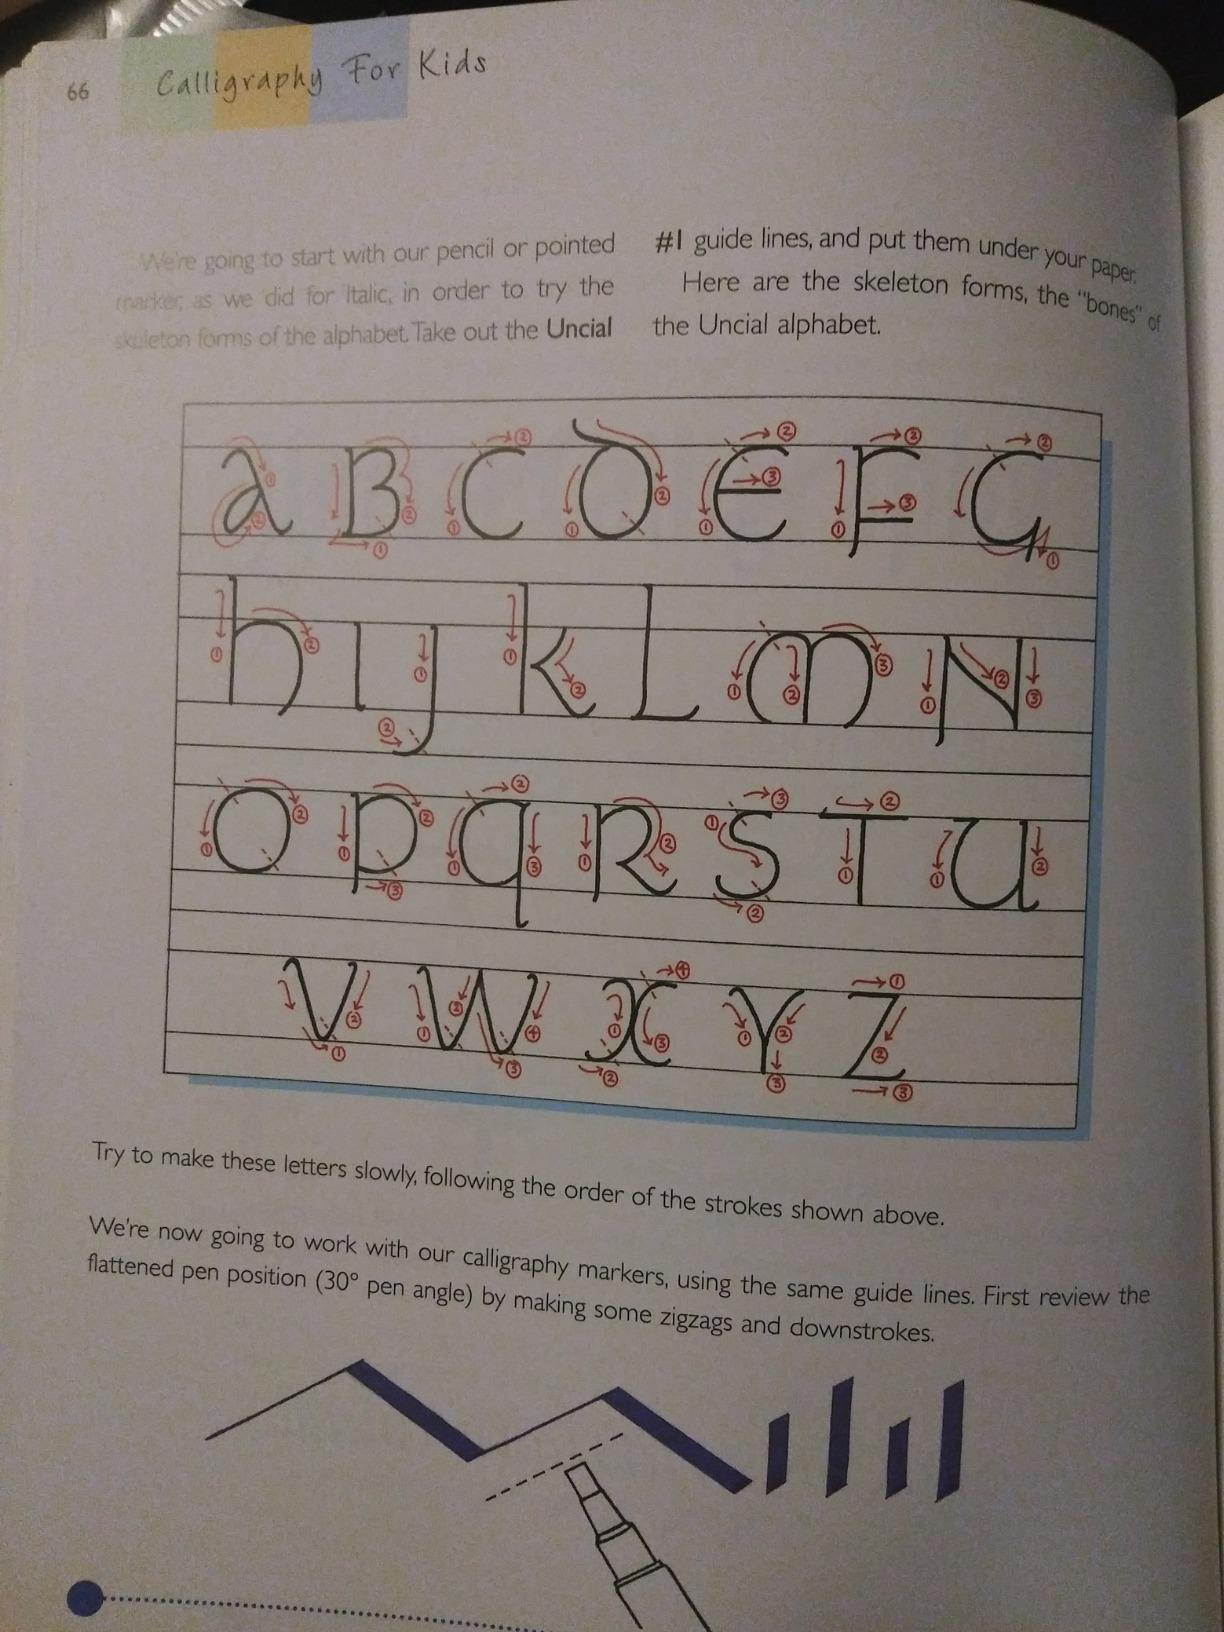 66
Calligraphy For Kids
We're going to start with our pencil or pointed
marker, as we did for Italic, in order to try the
skeleton forms of the alphabet. Take out the Uncial
#1 guide lines, and put them under your paper.
Here are the skeleton forms, the "bones" of
the Uncial alphabet.
a B C D E F G
h I J K L M N
O P Q R S T U
V W X Y Z
Try to make these letters slowly, following the order of the strokes shown above.
We're now going to work with our calligraphy markers, using the same guide lines. First review the
flattened pen position (30° pen angle) by making some zigzags and downstrokes.